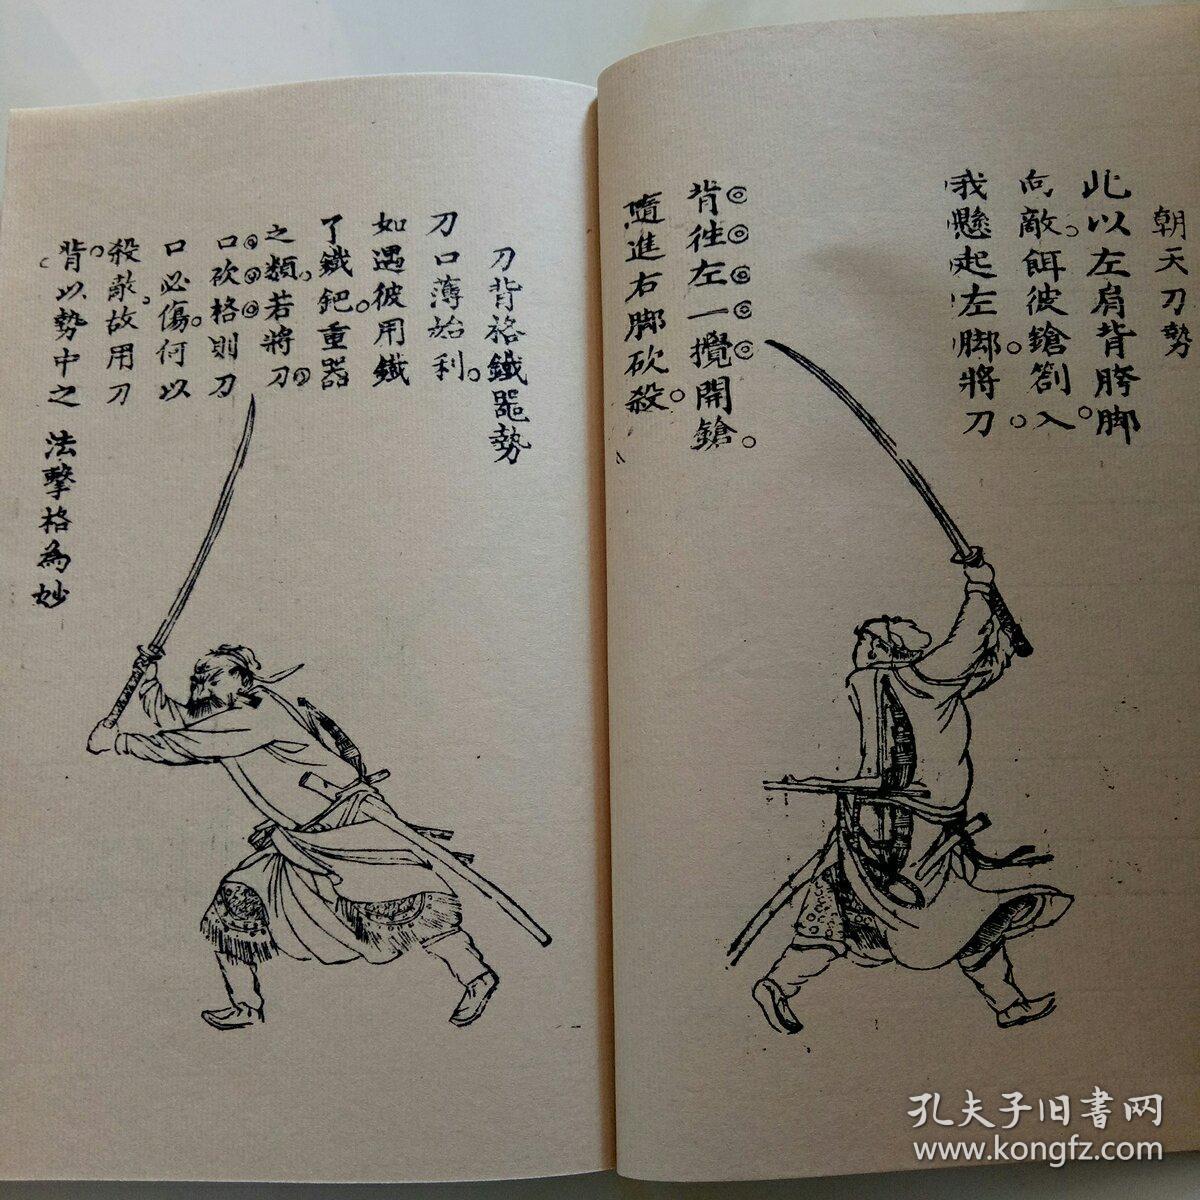 朝天刀勢
此以左肩背膀脚
向敵餌彼鎗劄入
我懸起左脚將刀
背徃左一攪開鎗
隨進右脚砍殺
刀背格鐵器勢
刀口薄始利
如遇彼用鐵
了鐵鈀重器
之類若將刀
口砍格則刀
口必傷何以
殺敵故用刀
背以勢中之
法擊格為妙
孔夫子旧書网
www.kongfz.com